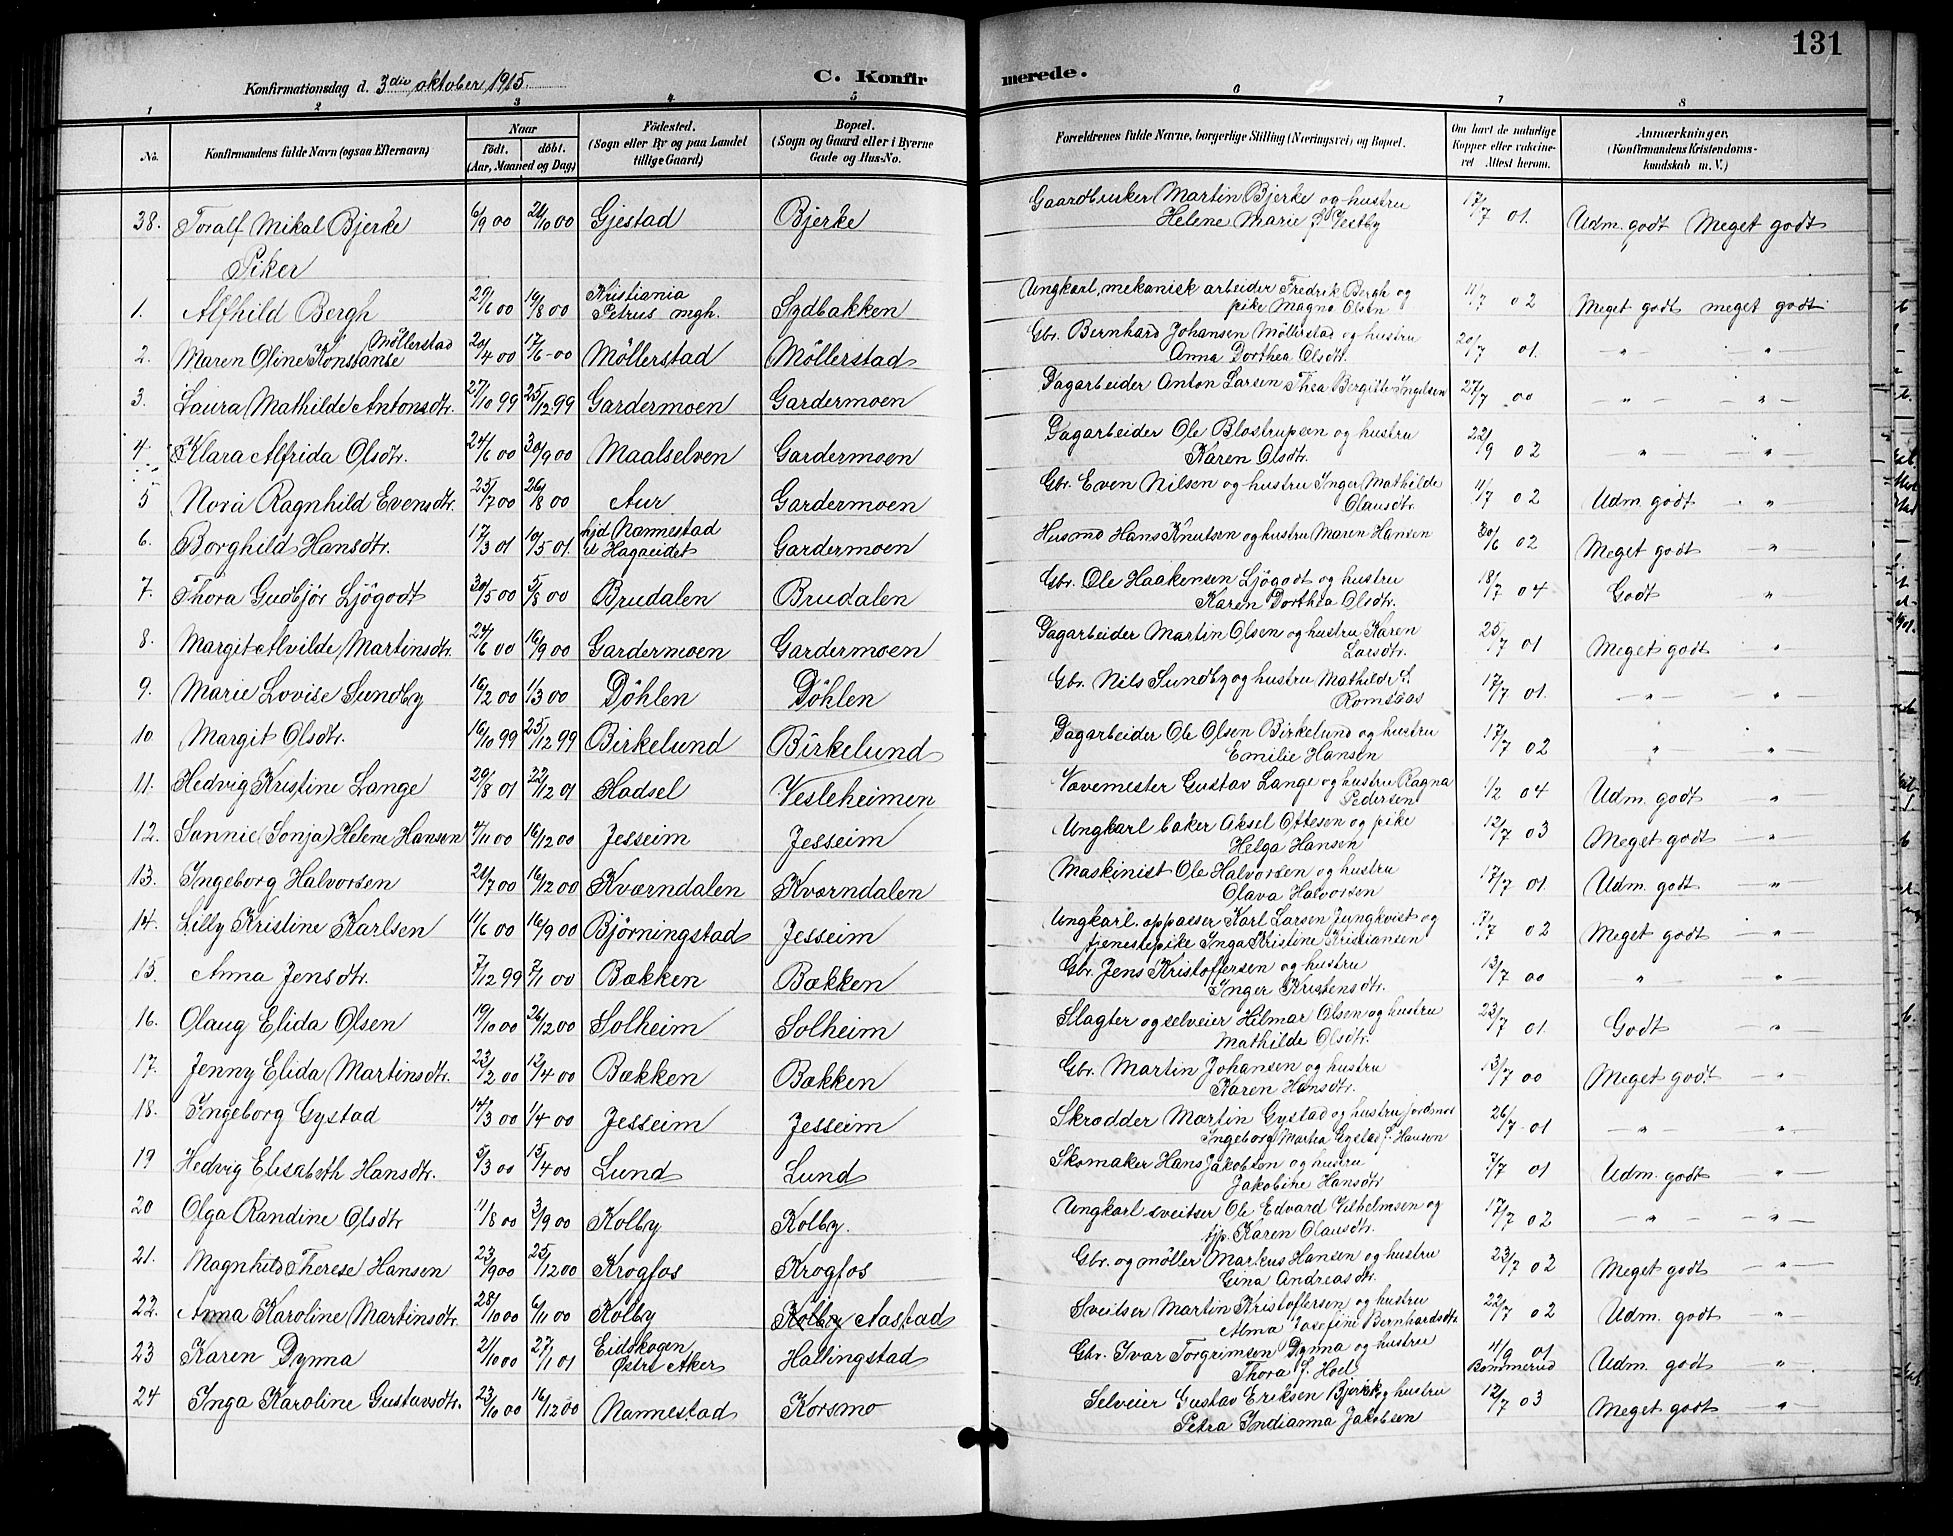 131
Konfirmationsdag d. 3die oktober 1915.
C. Konfirmerede.
1 2 3 4 5 6 7 8
No. Konfirmandens fulde Navn (ogsaa Efternavn) Naar født. døbt. (Aar, Maaned og Dag) Fødested. (Sogn eller By og paa Landet tillige Gaard) Bopæl. (Sogn og Gaard eller i Byerne Gade og Hus-No. Forældrenes fulde Navne, borgerlige Stilling (Næringsvei) og Bopæl. Om havt de naturlige Kopper eller vakcineret Attest herom. Anmærkninger. (Konfirmandens Kristendomskundskab m. V.)
38. Toralf Mikal Bjerke 6/9 00 21/10 00 Gjestad Bjerke Gaardbruker Martin Bjerke og hustru Helene Marie f. Vestby 17/7 01. Udm. godt Meget godt
Piker
1. Alfhild Bergh 29/6 00 19/8 00 Kristiania Petrus mgh. Sydbakken Ungkarl, mekanisk arbeider Fredrik Bergh og pike Magna Olsen 11/7 02 Meget godt meget godt
2. Maren Oline Konstanse Möllerstad 20/4 00 17/6 00 Möllerstad Möllerstad Gbr. Bernhard Johansen Möllerstad og hustru Anna Dorthea Olsdtr. 20/7 01. — " — — " —
3. Laura Mathilde Antonsdtr. 27/10 99 25/12 99 Gardermoen Gardermoen Dagarbeider Anton Larsen Thea Birgitte Ingelsen 27/7 00 — " — — " —
4. Klara Alfrida Olsdtr. 24/6 00 30/9 00 Maalselven Gardermoen Dagarbeider Ole Blostrupsen og hustru Karen Olsdtr. 22/9 02 " — " —
5 Nora Ragnhild Evensdtr. 25/7 00 26/8 00 Aur Gardermoen Gbr. Even Nilsen og hustru Inger Mathilde Olausdtr. 11/7 02 Udm. godt — " —
6. Borghild Hansdtr. 17/3 01 19/5 01. hjd Nannestad til Hagaeidet Gardermoen Husmd Hans Knutsen og hustru Maren Hansen 30/6 02 Meget godt — " —
7. Thora Gudbjør Ljögodt 30/5 00 5/8 00 Brudalen Brudalen Gbr. Ole Haakensen Ljögodt og hustru Karen Dorthea Olsdtr. 18/7 04 Godt "
8. Margit Alvilde Martinsdtr. 24/6 00 16/9 00 Gardermoen Gardermoen Dagarbeider Martin Olsen og hustru Karen Larsdtr. 25/7 01 Meget godt "
9. Marie Lovise Sundby 16/2 00 1/3 00 Döhlen Döhlen Gbr. Nils Sundby og hustru Mathilde f. Romsaas 17/7 01. — " — "
10 Margit Olsdtr. 16/10 99 25/12 99 Birkelund Birkelund Dagarbeider Ole Olsen Birkelund og hustru Emilie Hansen 17/7 02 " — " —
11. Hedvig Kristine Lange 29/8 01 22/12 01 Hadsel Vesleheimen Vævemester Gustav Lange og hustru Ragna Pedersen 1/2 04 Udm. godt "
12. Sunnie (Sonja) Helene Hansen 4/11 00 16/12 00 Jesseim Jesseim Ungkarl baker Aksel Ottesen og pike Helga Hansen 12/7 03 Meget godt — " —
13. Ingeborg Halvorsen 21/7 00 16/12 00 Kværndalen Kværndalen Maskinist Ole Halvorsen og hustru Olava Halvorsen 17/7 01. Udm. godt — " —
14. Lilly Kristine Karlsen 11/6 00 16/9 00 Björningstad Jesseim Ungkarl. oppasser Karl Larsen Jungkvist og tjenestepike Inga Kristine Kristiansen 7/7 02 Meget godt — " —
15. Anna Jensdtr. 7/12 99 7/1 00 Bækken Bækken Gbr. Jens Kristoffersen og hustru Inger Kristensdtr. 13/7 00 " "
16. Olaug Elida Olsen 19/10 00 26/12 00 Solheim Solheim Slagter og selveier Hilmar Olsen og hustru Mathilde Olsdtr. 23/7 01. Godt — " —
17. Jenny Elida Martinsdtr. 23/2 00 12/4 00 Bækken Bækken Gbr. Martin Johansen og hustru Karen Hansdtr. 13/7 00 Meget godt "
18. Ingeborg Gystad 14/3 00 1/4 00 Jesseim Jesseim Skrædder Martin Gystad og hustru jordmor Ingeborg Martea Gystad f. Hansen 26/7 01 — " — "
19 Hedvig Elisabeth Hansdtr. 5/3 00 15/4 00 Lund Lund Skomaker Hans Jakobsen og hustru Jakobine Hansdtr 7/7 01 Udm. godt "
20 Olga Randine Olsdtr 11/8 00 3/9 00 Kolby Kolby. Ungkarl sveitser Ole Edvard Vilhelmsen og tjp. Karen Olausdtr. 17/7 02 — " — — " —
21. Magnhild Therese Hansen 23/9 00 25/12 00 Krogfos Krogfos Gbr. og møller Markus Hansen og hustru Gina Andreasdtr. 23/7 02 Meget godt — " —
22. Anna Karoline Martinsdtr. 28/10 00 6/11 00 Kolby Kolby Aastad Sveitser Martin Kristoffersen og hustru Alma Josefine Bernhardsdtr 22/7 02 Udm. godt "
23 Karen Dynna 21/10 00 27/1 01 Eidskogen Østre Aker Hallingstad Gbr. Ivar Torgrimsen Dynna og hustru Thora f. Hoel 11/9 01 Bommerud Udm. godt "
24 Inga Karoline Gustavsdtr. 23/10 00 16/12 00 Nannestad Korsmo Selveier Gustav Eriksen Bjerke og hustru Petra Indianna Jakobsen 12/7 03 Meget godt — " —